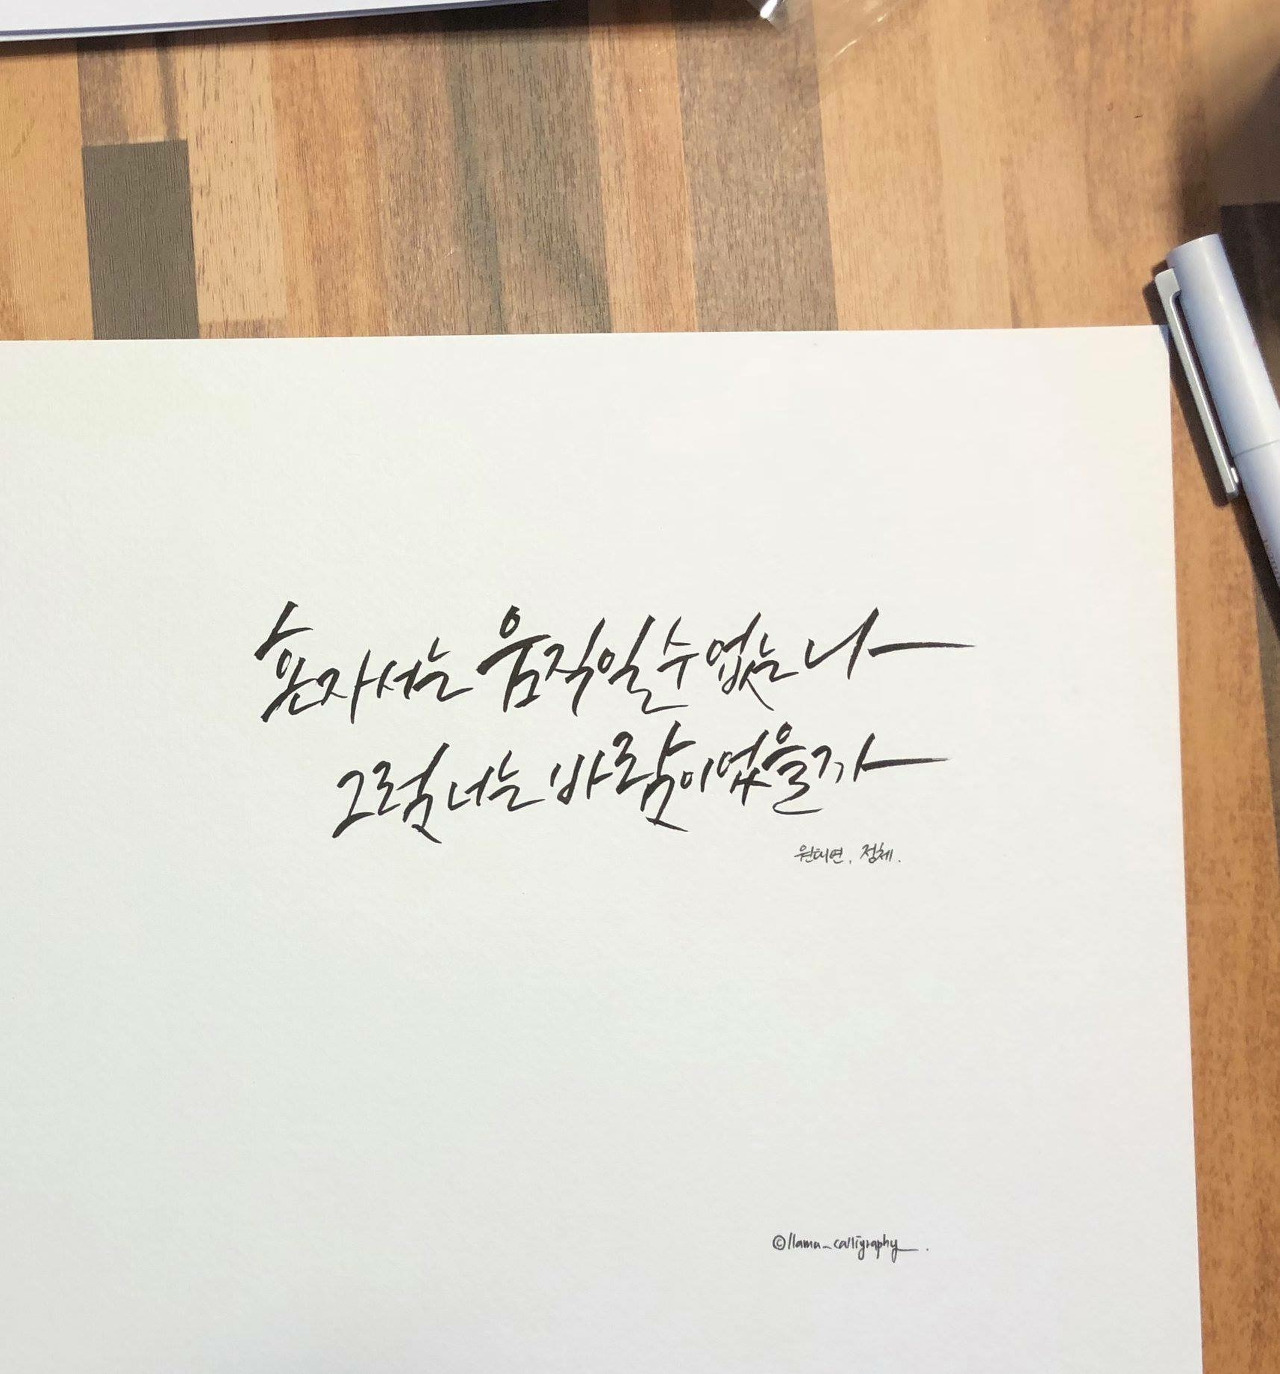 혼자서는 움직일 수 없는 나
그럼 너는 바람이었을까
원태연, 정체.
©llama_calligraphy.